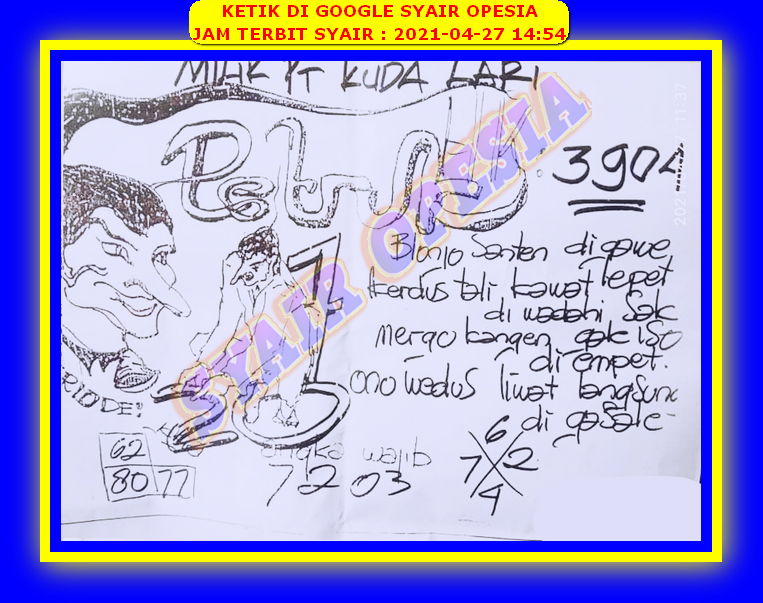 KETIK DI GOOGLE SYAIR OPESIA
JAM TERBIT SYAIR : 2021-04-27 14:54
MILIK PT KUDA LARI
3904
SYAIR OPESIA
Blonjo Santen digawe lepet
kerdus tali kawat
di wadahi Sak
mergo kangen gak iso
di empet.
ono wedus liwat langsung
di gasak
62
80 77
angka wajib
7203
6
7 2
4